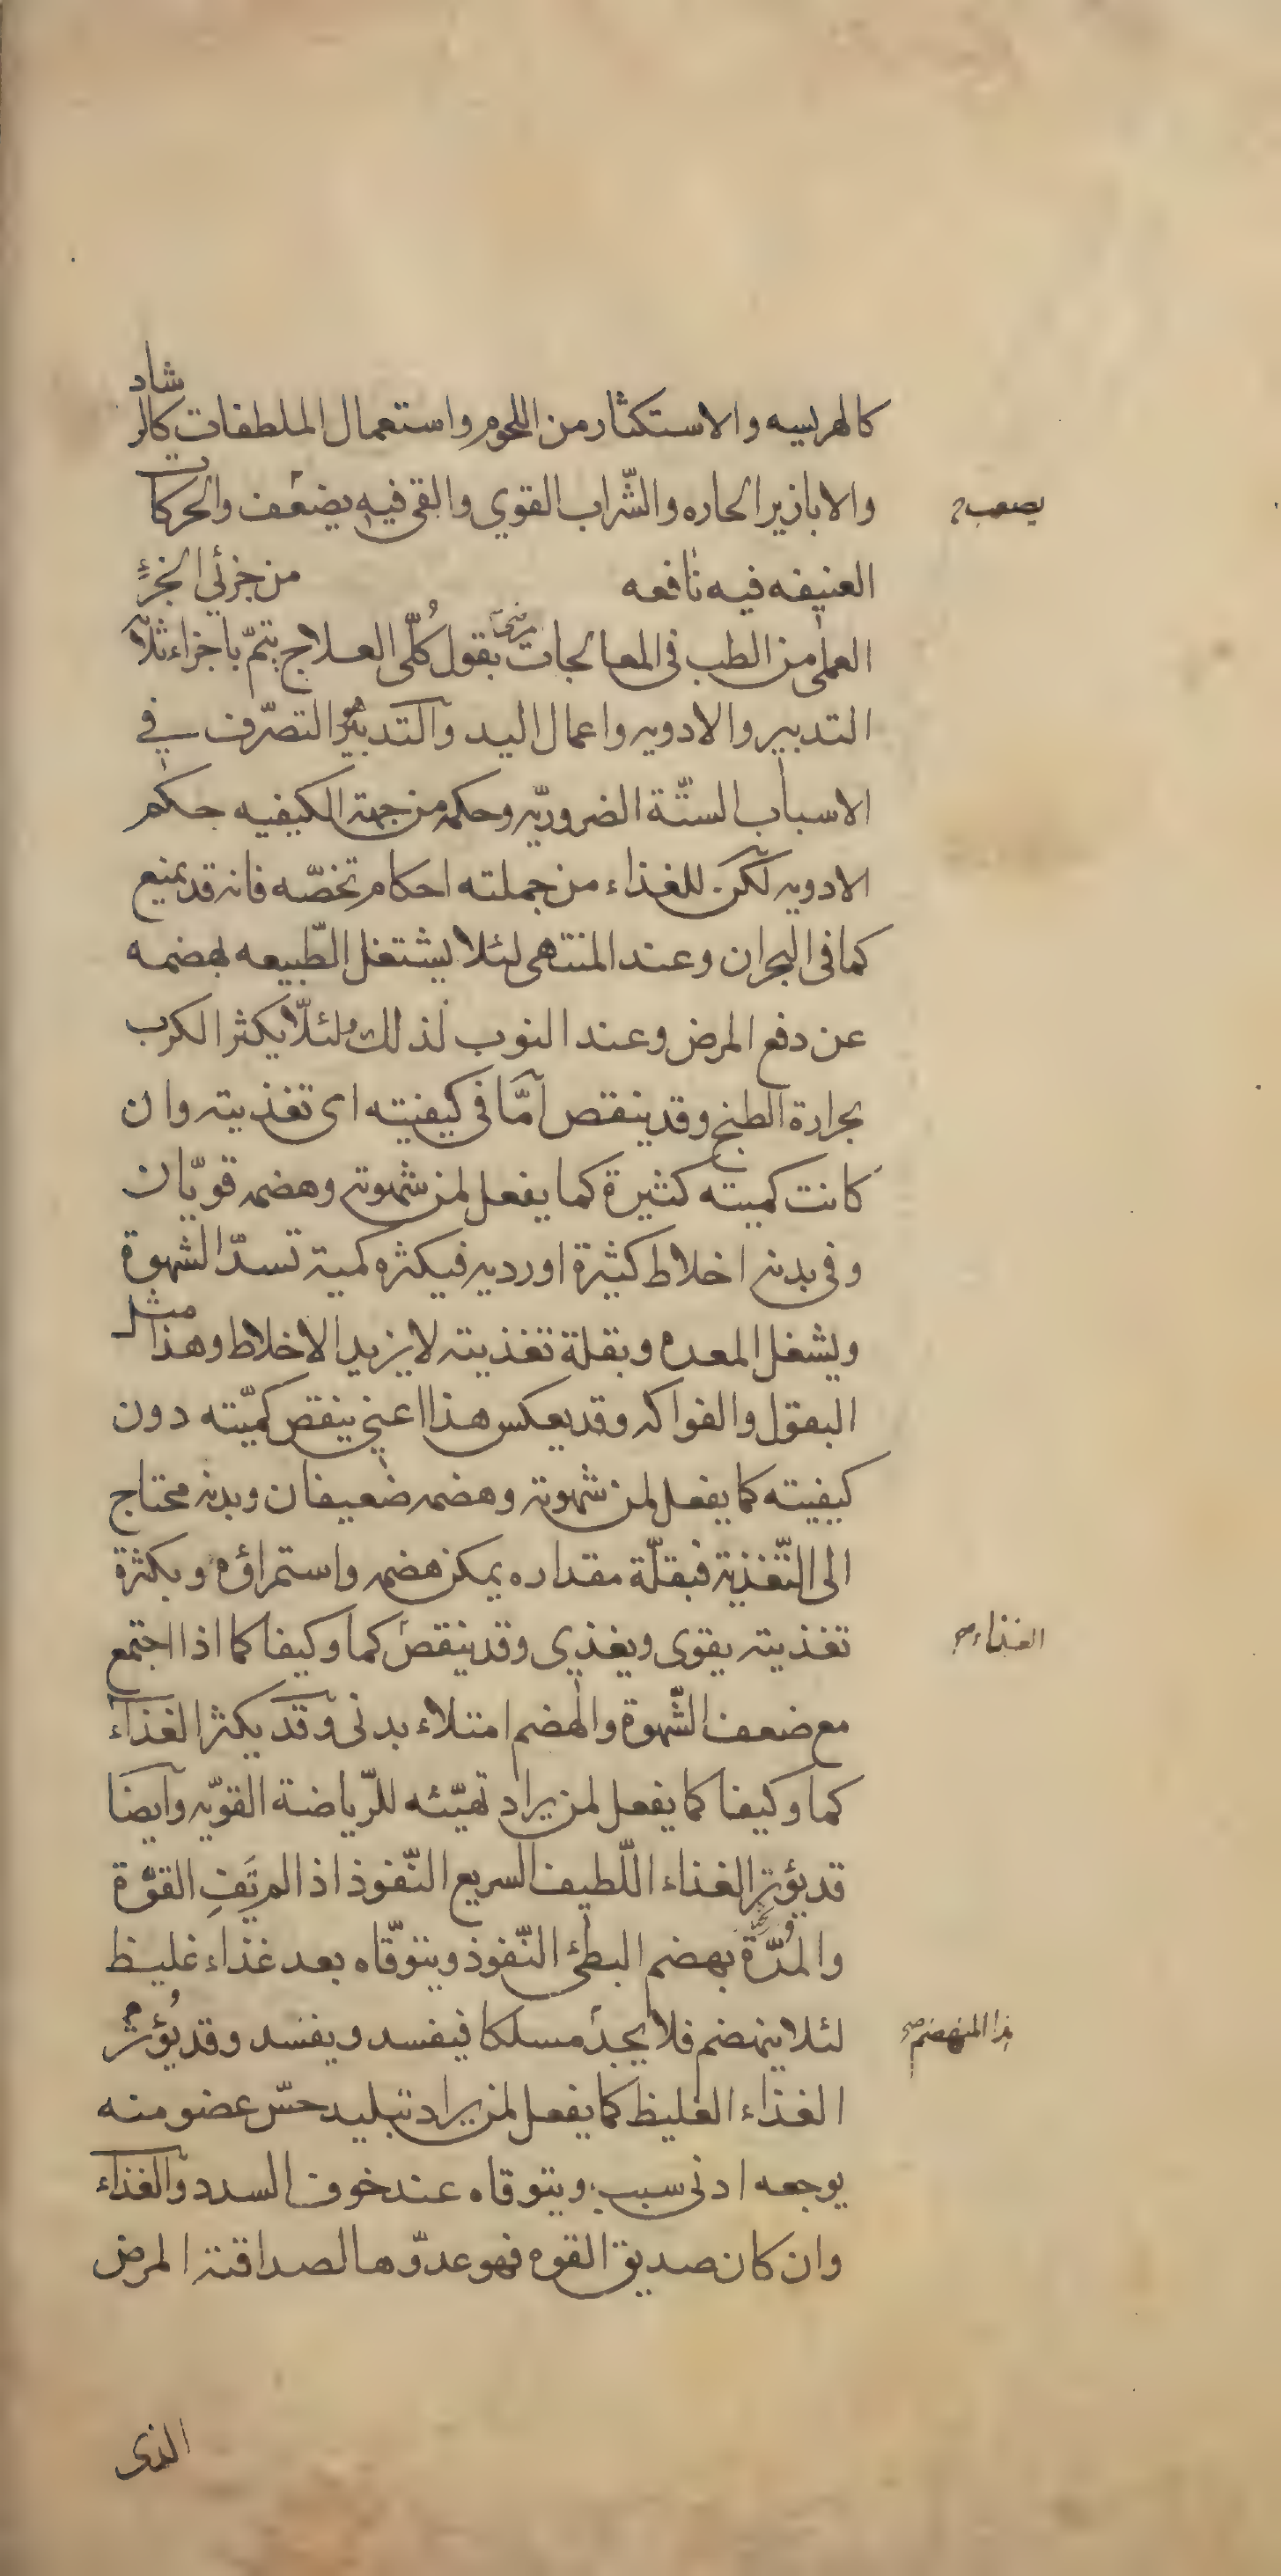 كالهريسه والاستكثار من اللحوم واستعمال الملطفات كالرشاد
والابازير الحاره والشّراب القوي والقى فيه يضعف والحركات
يصعب
العنيفه فيه نافعه من جزئي الجزء
العملى من الطب فى المعالجات بقول كُلّى العلاج يتمّ باجزاء ثلاثة
التدبير والادويه واعمال اليد والتدبير هو التصرّف في
الاسباب الستّة الضروريّه وحكمه من جهة الكيفيه حكم
الادويه لكن للغذاء من جملته احكام تخصّه فانه قد يمنع
كما فى البحران وعند المنتهى لئلا يشتغل الطّبيعه بهضمه
عن دفع المرض وعند النوب لذلك ولئلّا يكثر الكرب
بحرارة الطبخ وقد ينقص امّا فى كيفيته اى تغذيته وان
كانت كميته كثيرة كما يفعل لمن شهوته وهضمه قويّان
وفى بدنه اخلاط كثيرة او رديه فبكثره كميته تسدّ الشهوة
ويشغل المعده وبقلة تغذيته لا يزيد الاخلاط وهذا مثل
البقول والفواكه وقد يعكس هذا اعني ينقص كميّته دون
كيفيته كما يفعل لمن شهوته وهضمه ضعيفان وبدنه محتاج
الى التّغذية فبقلّة مقداره يمكن هضمه واستمراؤه وبكثرة
تغذيته يقوى ويغذي وقد ينقص كما وكيفا كما اذا اجتمع
الغذاء صح
مع ضعف الشّهوة والهضم امتلاء بدنى وقد يكثر الغذاء
كما وكيفا كما يفعل لمن يراد تهيّئه للرّياضة القويّه وايضا
قد يؤثر الغذاء اللّطيف السريع النّفوذ اذا لم تَفِ القوّة
والمُدّة بهضم البطئ النّفوذ ويتوقّاه بعد غذاء غليظ
لئلا ينهضم فلا يجد مسلكا فيفسد ويفسد وقد يُؤثر
هذا المنهضم صح
الغذاء الغليظ كما يفعل لمن يراد تبليد حسّ عضو منه
يوجعه ادنى سبب ويتوقاه عند خوف السدد والغذاء
وان كان صديق القوه فهو عدوّها لصداقته المرض
الذى